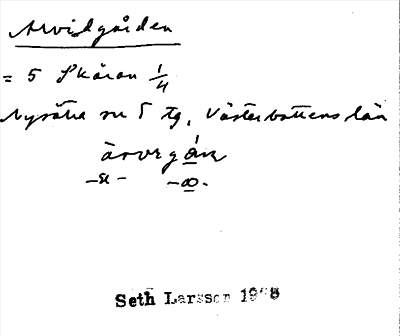 Arvidgården
= 5 Skäran 1/4
Nysätra sn 5 tg, Västerbottens län
ärvegå
Seth Larsson 19 8